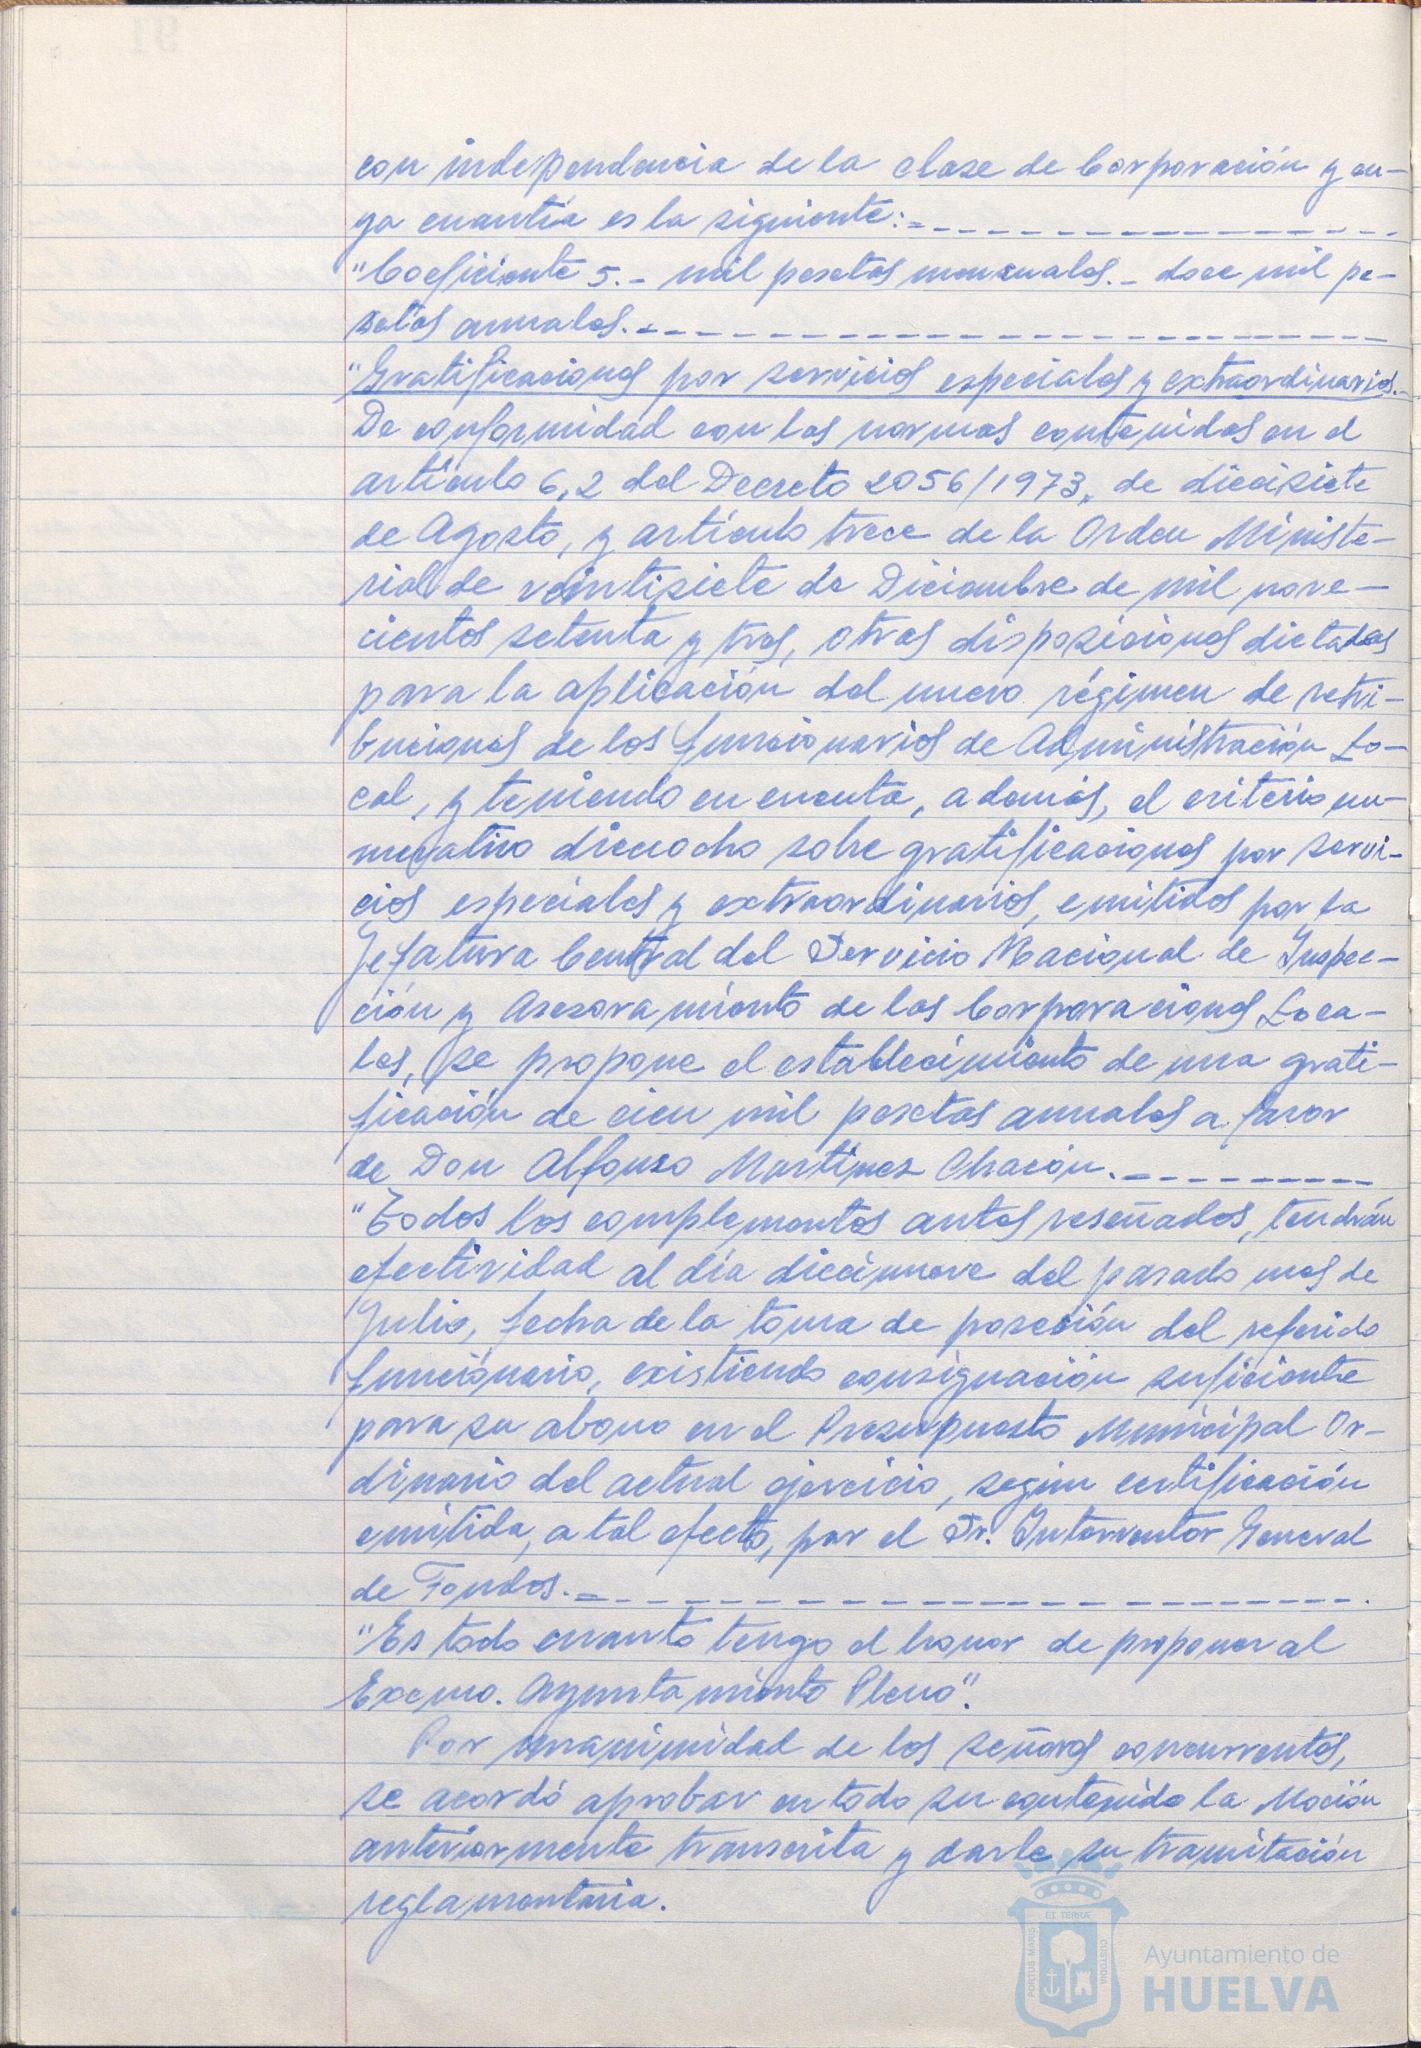 con independencia de la clase de Corporación y cu-
ya cuantía es la siguiente:
"Coeficiente 5.- mil pesetas mensuales.- doce mil pe-
setas anuales.
"Gratificaciones por servicios especiales y extraordinarios.-
De conformidad con las normas contenidas en el
artículo 6,2 del Decreto 2056/1973, de diecisiete
de Agosto, y artículo trece de la Orden Ministe-
rial de veintisiete de Diciembre de mil nove-
cientos setenta y tres, otras disposiciones dictadas
para la aplicación del nuevo régimen de retri-
buciones de los funcionarios de Administración Lo-
cal, y teniendo en cuenta, además, el criterio nu-
merativo dieciocho sobre gratificaciones por servi-
cios especiales y extraordinarios, emitidos por la
Jefatura Central del Servicio Nacional de Inspec-
ción y Asesoramiento de las Corporaciones Loca-
les, se propone el establecimiento de una grati-
ficación de cien mil pesetas anuales a favor
de Don Alfonso Martinez Chacón.
"Todos los complementos antes reseñados, tendrán
efectividad al día diecinueve del pasado mes de
Julio, fecha de la toma de posesión del referido
funcionario, existiendo consignación suficiente
para su abono en el Presupuesto Municipal Or-
dinario del actual ejercicio, según certificación
emitida, a tal efecto, por el Sr. Interventor General
de Fondos.
"Es todo cuanto tengo el honor de proponer al
Excmo. Ayuntamiento Pleno".
Por unanimidad de los señores concurrentes,
se acordó aprobar en todo su contenido la Moción
anteriormente transcrita y darle su tramitación
reglamentaria.
ET TERRÆ
PORTUS MARIS
CUSTODIA
Ayuntamiento de
HUELVA